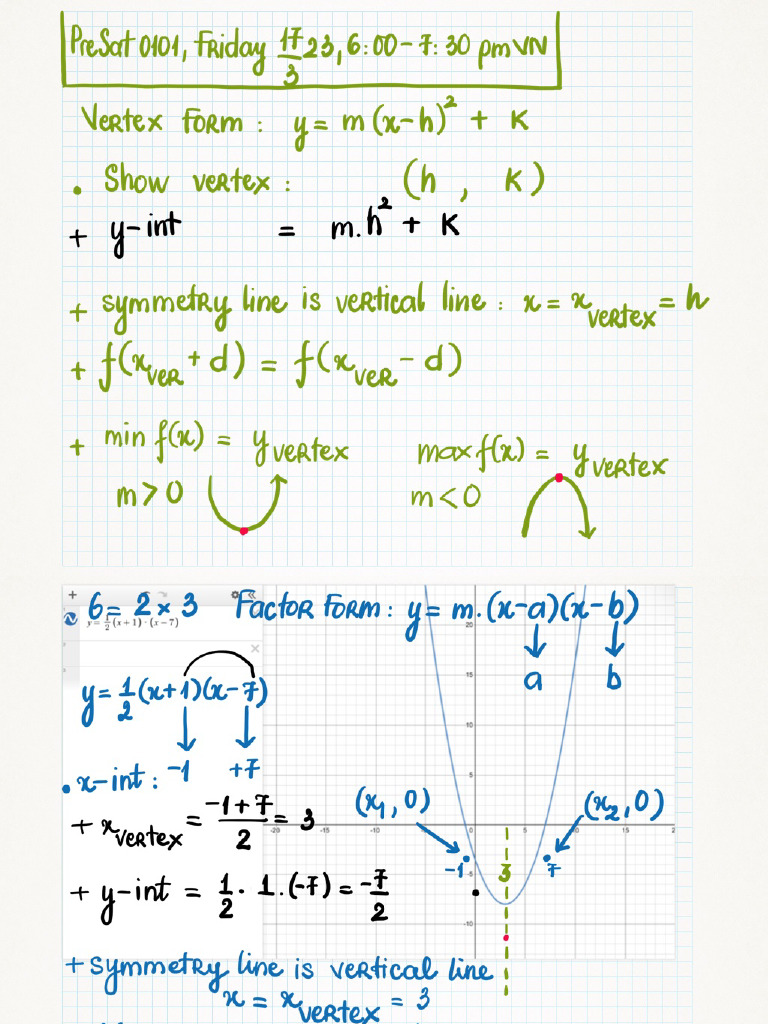 PreSat 0101, Friday 17/3 23, 6:00 - 7:30 pm VN
Vertex Form: y = m(x-h)² + K
• Show vertex: (h, K)
+ y-int = m.h² + K
+ symmetry line is vertical line: x = x_vertex = h
+ f(x_ver + d) = f(x_ver - d)
+ min f(x) = y_vertex max f(x) = y_vertex
m > 0 m < 0
6 = 2 × 3 Factor Form: y = m.(x-a)(x-b)
y = 1/2 (x+1)·(x-7)
a b
y = 1/2 (x+1)(x-7)
• x-int: -1 +7
(x₁, 0) (x₂, 0)
+ x_vertex = (-1+7)/2 = 3
-1 3 7
+ y-int = 1/2 · 1.(-7) = -7/2
+ symmetry line is vertical line
x = x_vertex = 3
20
15
10
5
-20 -15 -10 -5 0 5 10 15 2
-5
-10